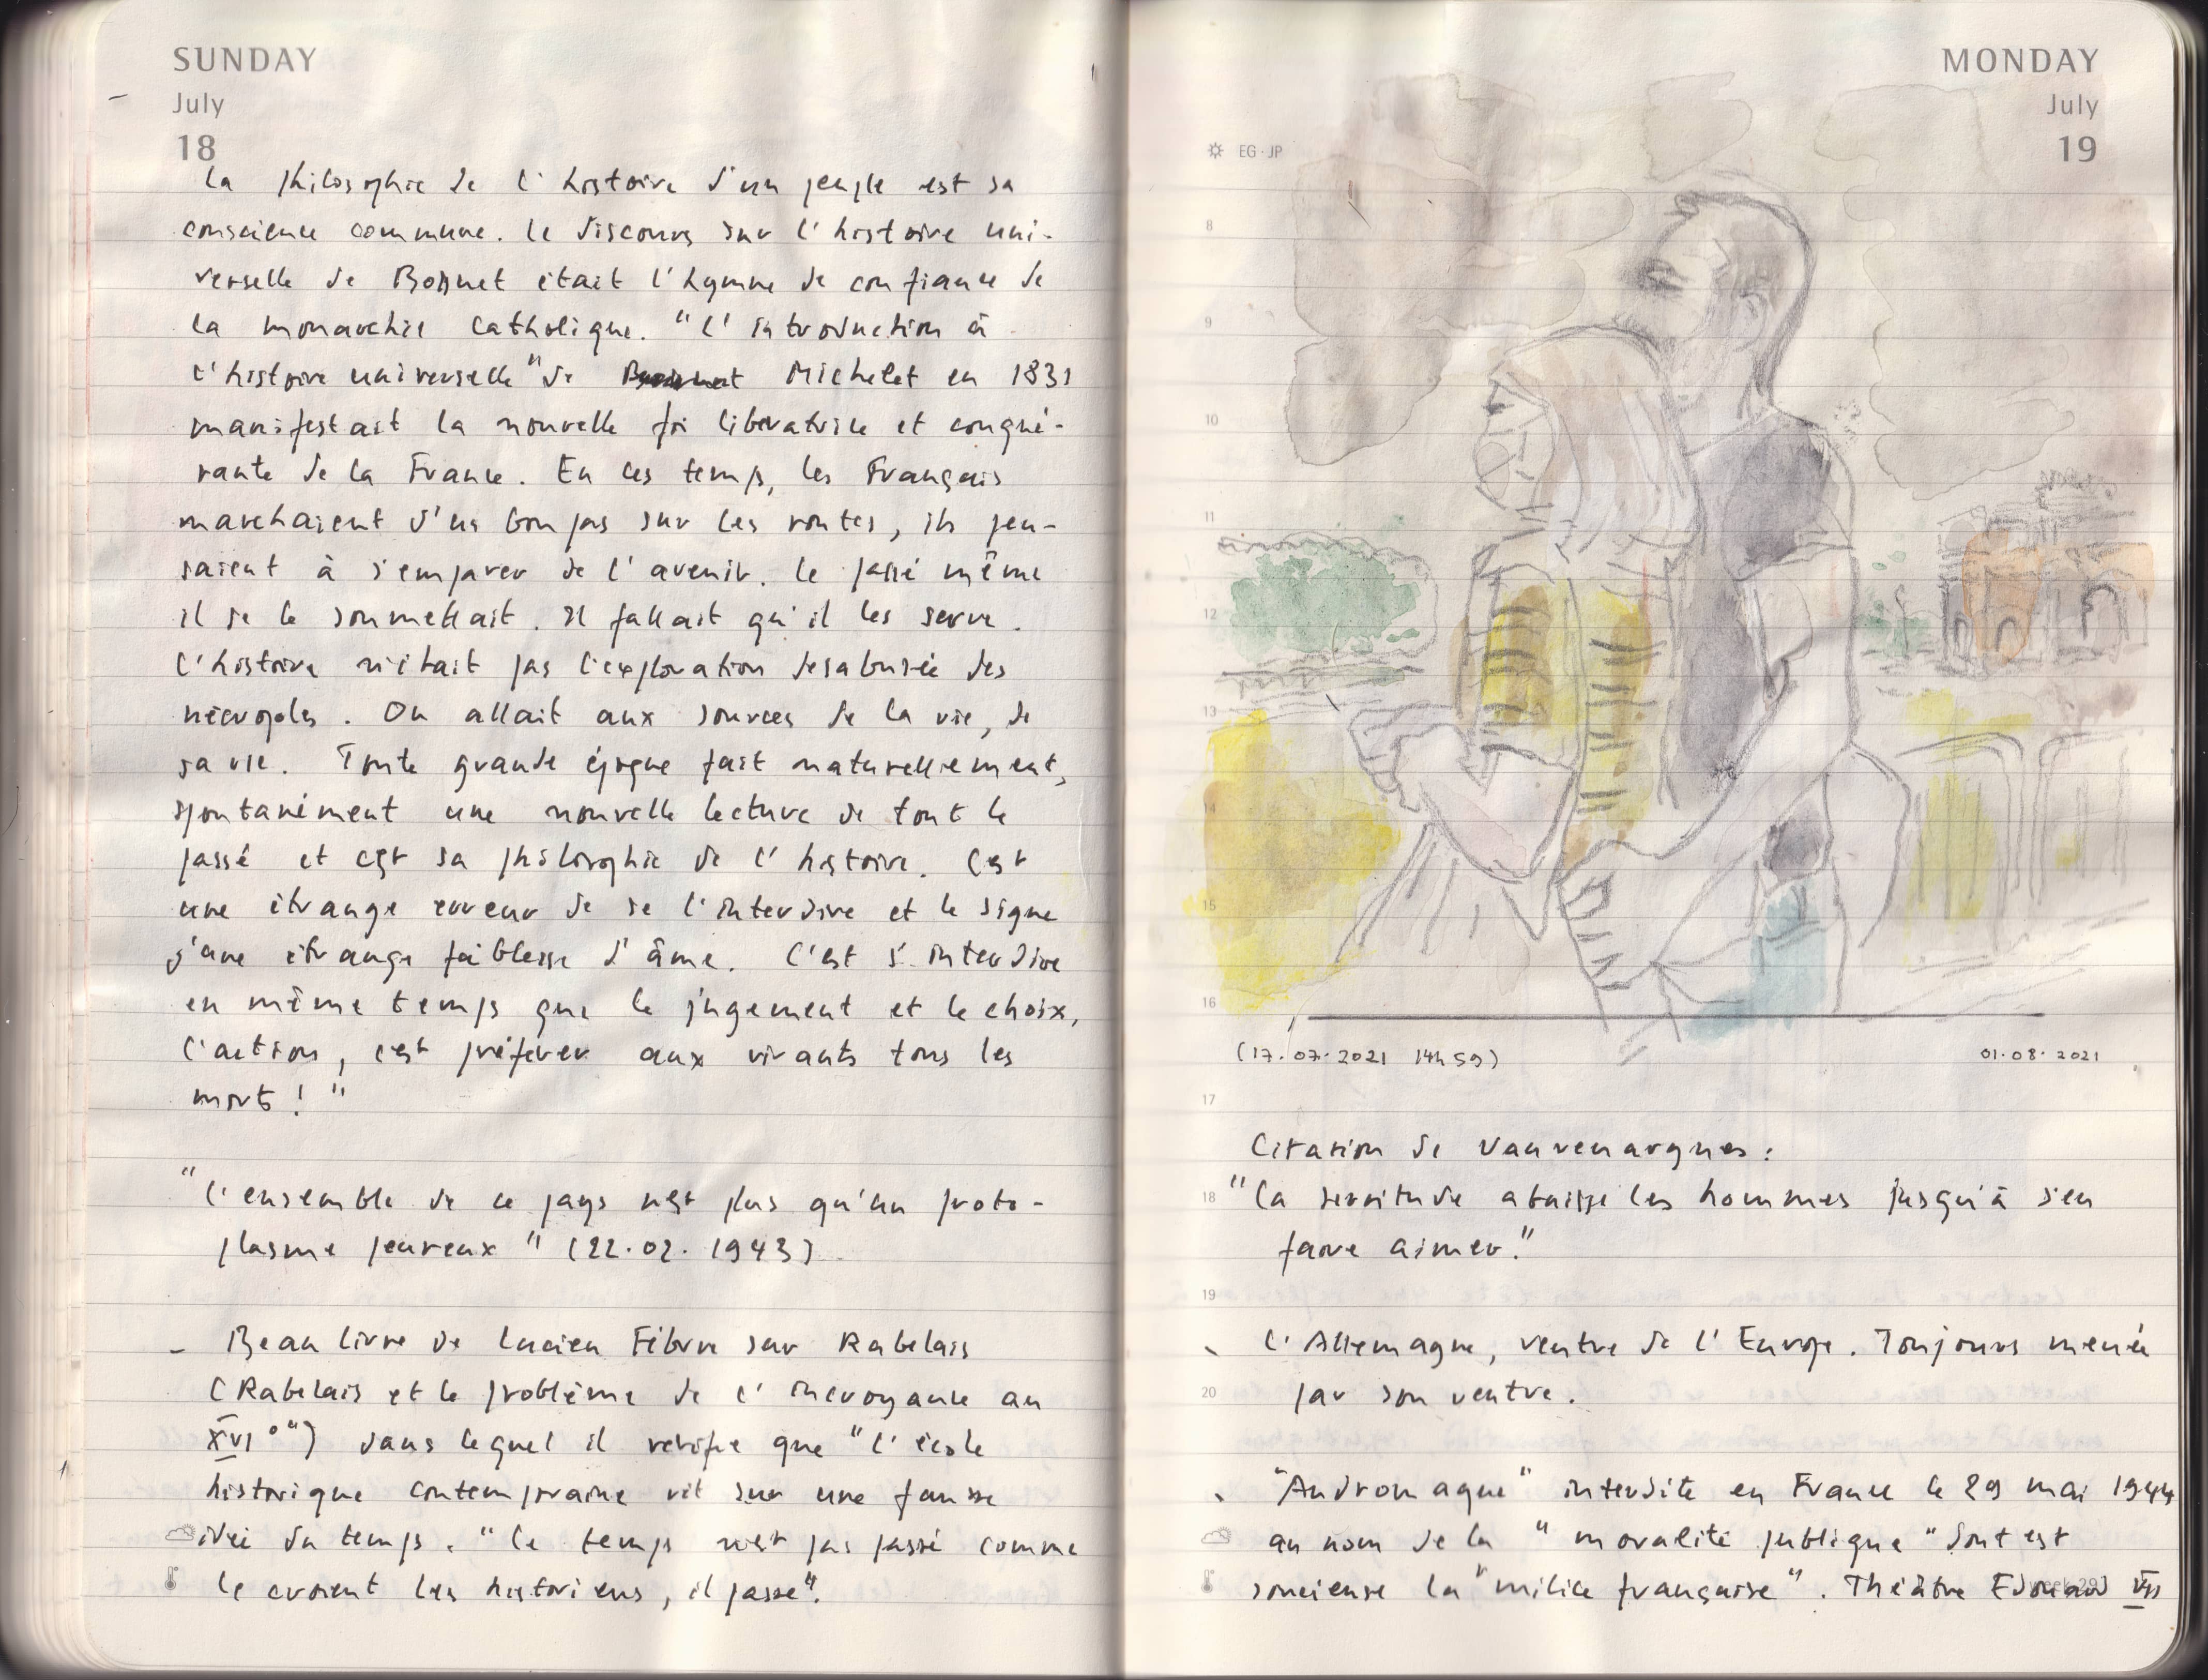 SUNDAY
July
18
La philosophie de l'histoire d'un peuple est sa
conscience commune. Le discours sur l'histoire uni-
verselle de Bossuet était l'hymne de confiance de
la monarchie catholique. "L'introduction à
l'histoire universelle" de Michelet en 1831
manifestait la nouvelle foi libératrice et conqué-
rante de la France. En ces temps, les Français
marchaient d'un bon pas sur les routes, ils pen-
saient à s'emparer de l'avenir. Le passé même
il se le soumettait. Il fallait qu'il les serve.
L'histoire n'était pas l'exploration desabusée des
nécropoles. On allait aux sources de la vie, de
sa vie. Toute grande époque fait naturellement,
spontanément une nouvelle lecture de tout le
passé et c'est sa philosophie de l'histoire. C'est
une étrange erreur de se l'interdire et le signe
d'une étrange faiblesse d'âme. C'est s'interdire
en même temps que le jugement et le choix,
l'action, c'est préférer aux vivants tous les
morts ! "
"L'ensemble de ce pays n'est plus qu'un proto-
plasme peureux " (22.02.1943)
- Beau livre de Lucien Fèbvre sur Rabelais
(Rabelais et le problème de l'incroyance au
XVI°") dans lequel il vérifie que "l'école
historique contemporaine vit sur une fausse
idée du temps. "Le temps n'est pas passé comme
le croient les historiens, il passe".
MONDAY
July
19
EG·JP
8
9
10
11
12
13
14
15
16
(17.07.2021 14h59) 01.08.2021
17
Citation de Vauvenargues :
18 "La servitude abaisse les hommes jusqu'à s'en
faire aimer."
19
- L'Allemagne, ventre de l'Europe. Toujours menée
20 par son ventre.
- "Andromaque" interdite en France le 29 mai 1944
au nom de la "moralité publique" dont est
soucieuse la "milice française". Théâtre Edouard VII